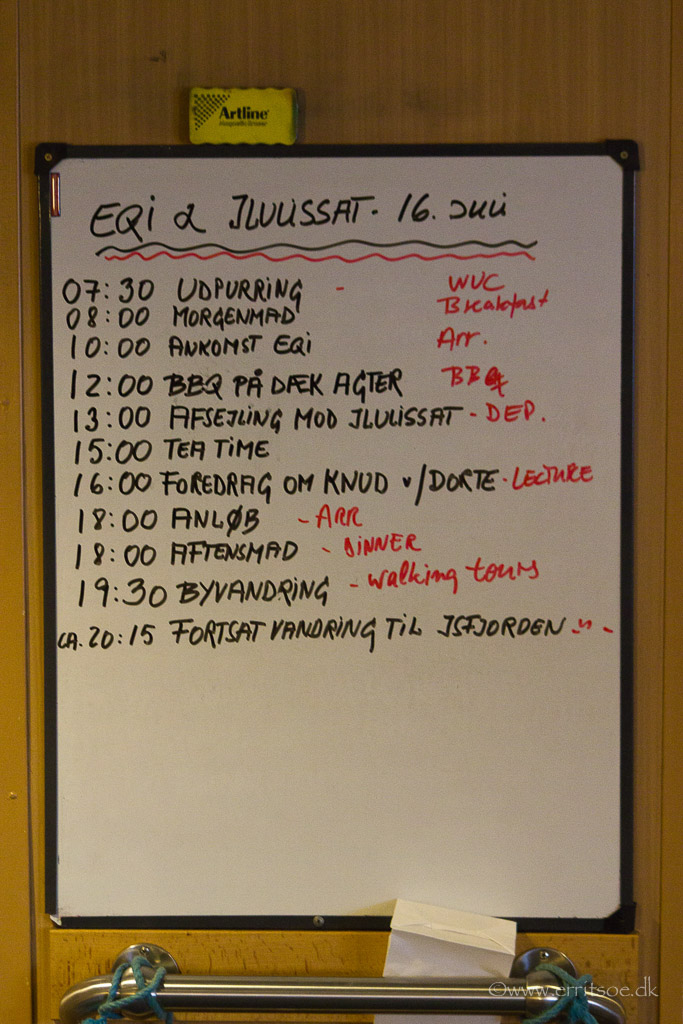 Artline
EQI & ILULISSAT - 16. JULI
07:30 UDPURRING - WUC
08:00 MORGENMAD Breakfast
10:00 ANKOMST EQI Arr.
12:00 BBQ PÅ DÆK AGTER BBQ
13:00 AFSEJLING MOD ILULISSAT - DEP.
15:00 TEA TIME
16:00 FOREDRAG OM KNUD v/DORTE - LECTURE
18:00 ANLØB - ARR
18:00 AFTENSMAD - DINNER
19:30 BYVANDRING - walking tours
CA. 20:15 FORTSAT VANDRING TIL ISFJORDEN - " -
©www.erritsoe.dk